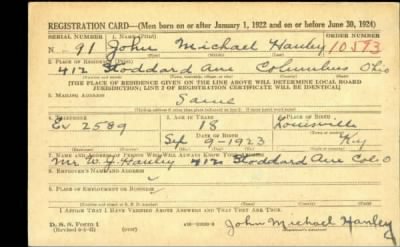 REGISTRATION CARD—(Men born on or after January 1, 1922 and on or before June 30, 1924)
SERIAL NUMBER 1. NAME (Print) ORDER NUMBER
N- 91 John Michael Hanley 10573
2. PLACE OF RESIDENCE (Print)
412 Stoddard Ave Columbus Ohio
[THE PLACE OF RESIDENCE GIVEN ON THE LINE ABOVE WILL DETERMINE LOCAL BOARD
JURISDICTION; LINE 2 OF REGISTRATION CERTIFICATE WILL BE IDENTICAL]
3. MAILING ADDRESS
Same
4. TELEPHONE 5. AGE IN YEARS 6. PLACE OF BIRTH
Ev 2589 18 Louisville
DATE OF BIRTH
Sep 9-1923 Ky
7. NAME AND ADDRESS OF PERSON WHO WILL ALWAYS KNOW YOUR ADDRESS
Mr. W. J. Hanley 412 Stoddard Ave Col O
8. EMPLOYER'S NAME AND ADDRESS
9. PLACE OF EMPLOYMENT OR BUSINESS
I AFFIRM THAT I HAVE VERIFIED ABOVE ANSWERS AND THAT THEY ARE TRUE.
D. S. S. Form 1
John Michael Hanley